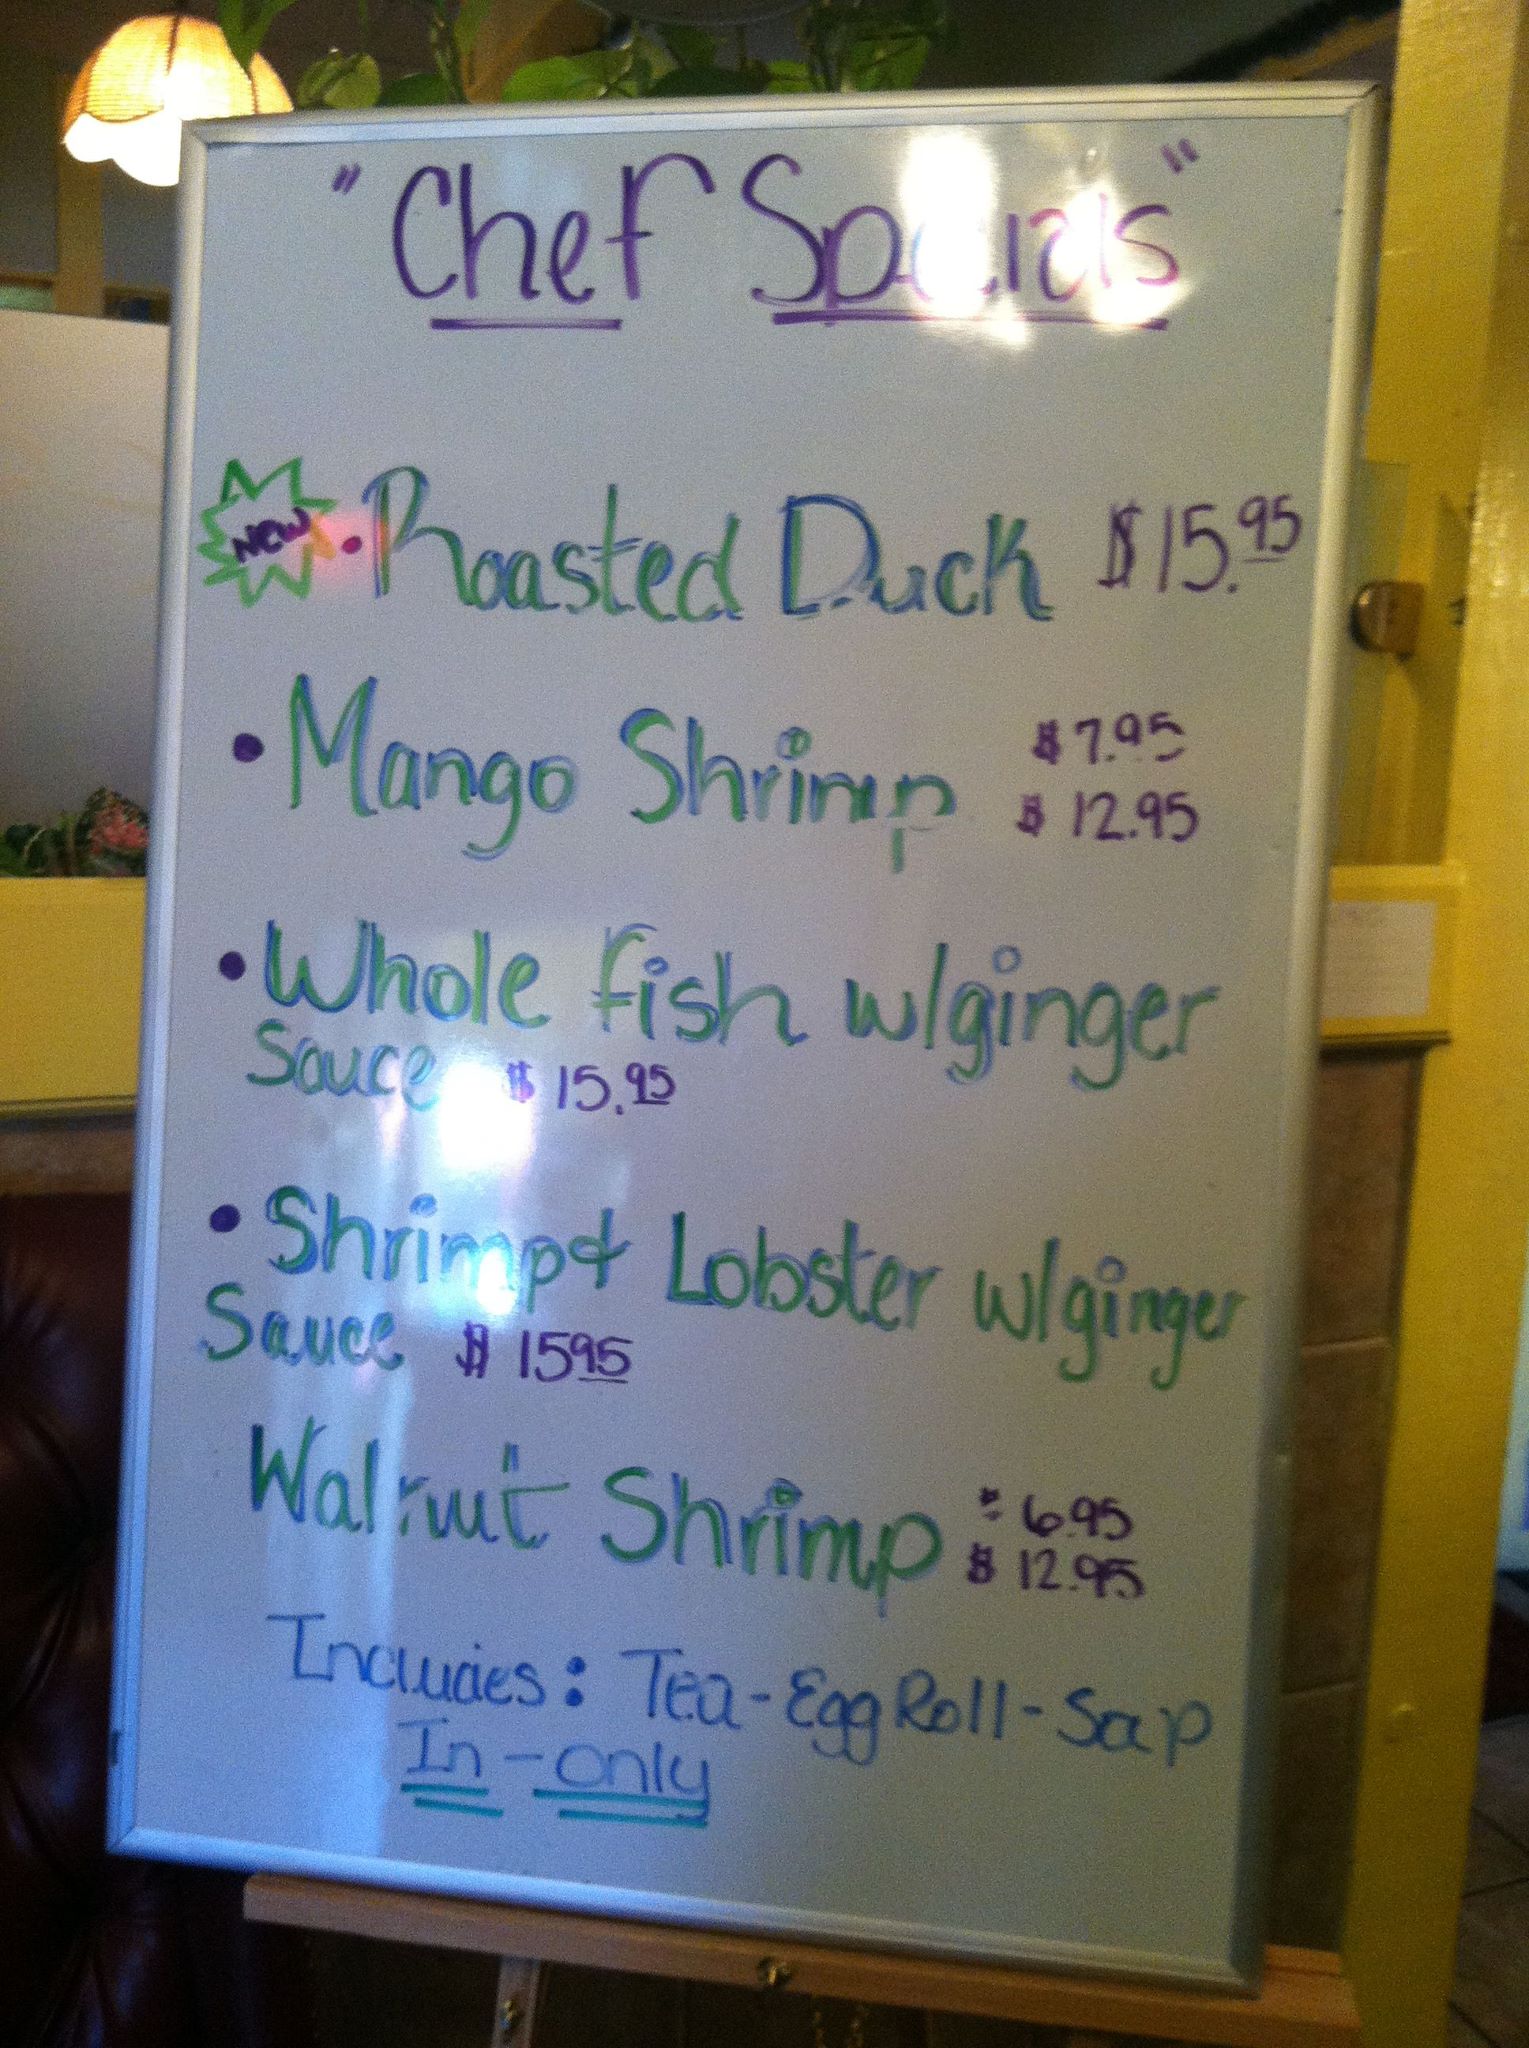 "Chef Specials"
NEW • Roasted Duck $15.95
• Mango Shrimp $7.95
$12.95
• Whole fish w/ginger
Sauce $15.95
• Shrimp & Lobster w/ginger
Sauce $1595
Walnut Shrimp $6.95
$12.95
Includes: Tea-Egg Roll-Soup
In-only